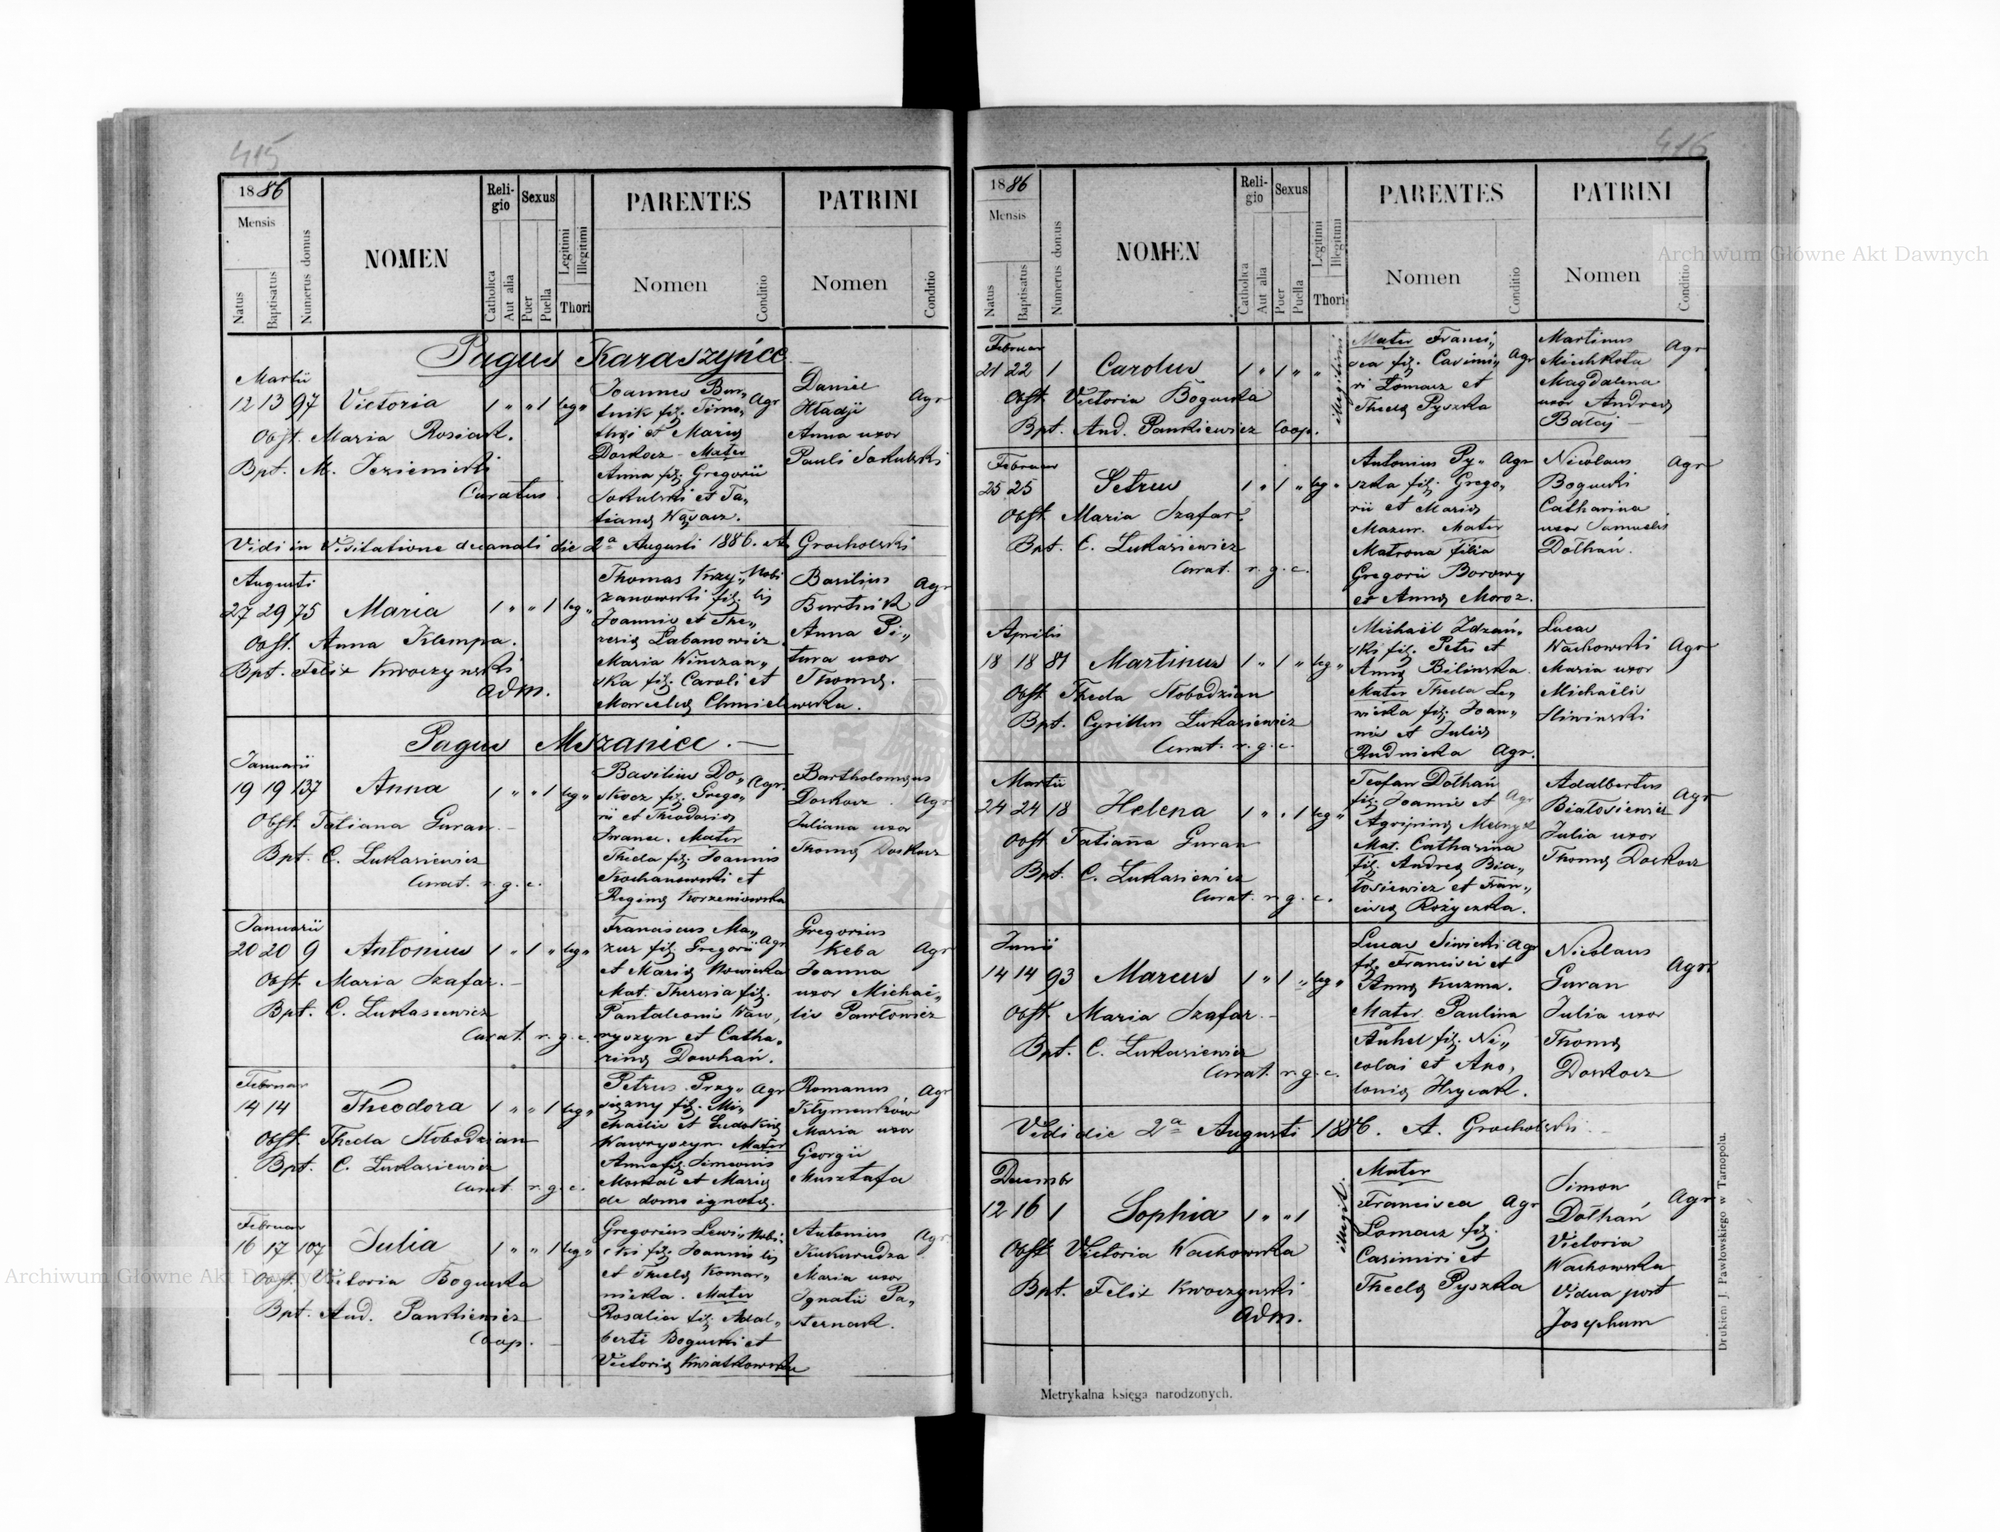 415
1886
Mensis
Natus
Baptisatus
Numerus domus
NOMEN
Reli-
gio
Catholica
Aut alia
Sexus
Puer
Puella
Legitimi
Illegitimi
Thori
PARENTES
Nomen
Conditio
PATRINI
Nomen
Conditio
Pagus Karaszyńce
Martii
12 13 97 Victoria 1 " " 1 leg "
Obst. Maria Rosiak.
Bpt. M. Jezienicki
Curatus
Joannes Bur„ Agr
tnik fil. Timo„
thei et Maria
Doskocz - Mater
Anna fil. Gregorii
Sokulski et Ta„
tiana
Daniel Agr
Hladji
Anna uxor
Pauli Sokulski
Vidi in Visitatione decanali die 2a Augusti 1886. A. Grocholski
Augusti
27 29 75 Maria 1 " " 1 leg "
Obst. Anna Klempa.
Bpt. Felix Kwoczynski
Adm.
Thomas Krzy„ Nobi
zanowski fil. lis
Joannis et The„
resia Labanowicz
Maria Winczan„
ska fil. Caroli et
Marcella Chmielewska.
Basilius Agr
Burtnik
Anna Pi„
tura uxor
Thoma.
Pagus Mszaniec. —
Januarii
19 19 137 Anna 1 " " 1 leg "
Obst. Tatiana Guran. —
Bpt. C. Lukasiewicz
Curat. r. g. c.
Basilius Do„ Agr.
skocz fil. Grego„
rii et Theodosia
Iwanec. Mater
Thecla fil. Joannis
Kochanowski et
Regina Korzeniowska
Bartholomaus
Doskocz. Agr
Juliana uxor
Thoma Doskocz
Januarii
20 20 9 Antonius 1 " 1 " leg "
Obst. Maria Szafar. —
Bpt. C. Lukasiewicz
Curat. r. g. c.
Franciscus Ma„
zur fil. Gregorii Agr
et Maria Nowicka
Mat. Theresia fil.
Pantaleonis Waw„
ryszyn et Catha„
rina Dowhań.
Gregorius
Keba Agr
Joanna
uxor Michaë„
lis Pawłowicz
Februar
14 14 Theodora 1 " " 1 leg "
Obst. Thecla Kobodzian
Bpt. C. Lukasiewicz
Curat. r. g. c.
Petrus Przy„ Agr
siężny fil. Mi„
chaëlis et Eudokia
Wawryszyn Mater
Anna fil. Simeonis
Moskal et Maria
de domo ignota.
Romanus Agr
Kłymenków
Maria uxor
Georgii
Musztafa
Februar
16 17 107 Julia 1 " " 1 leg "
Obst. Victoria Bogucka
Bpt. And. Pankiewicz
Coop. —
Gregorius Lewi„ Nobi
cki fil. Joannis lis
et Thecla Komar„
nicka. Mater
Rosalia fil. Adal„
berti Bogucki et
Victoria Kwiatkowska
Antonius Agr
Kukurudza
Maria uxor
Ignatii Pa„
sternak.
416
1886
Mensis
Natus
Baptisatus
Numerus domus
NOMEN
Reli-
gio
Catholica
Aut alia
Sexus
Puer
Puella
Legitimi
Illegitimi
Thori
PARENTES
Nomen
Conditio
PATRINI
Nomen
Conditio
Februar
21 22 1 Carolus 1 " 1 " " illegitimi
Obst. Victoria Bogucka
Bpt. And. Pankiewicz Coop.
Mater Franci„
sca fil. Casimi„ Agr
ri Lomasz et
Thecla Pyszka
Martinus Agr
Michkota
Magdalena
uxor Andrea
Bataj —
Februar
25 25 Petrus 1 " 1 " leg "
Obst. Maria Szafar.
Bpt. C. Lukasiewicz
Curat. r. g. c.
Antonius Py„ Agr
szka fil. Grego„
rii et Maria
Mazur. Mater
Matrona filia
Gregorii Borowy
et Anna Moroz.
Nicolaus Agr
Bogucki
Catharina
uxor Samuelis
Dołhań.
Aprilis
18 18 81 Martinus 1 " 1 " leg "
Obst. Thecla Kobodzian
Bpt. Cyrillus Lukasiewicz
Curat. r. g. c.
Michaël Zdzań„
ski fil. Petri et
Anna Bilinska
Mater Thecla Le„
wicka fil. Joan„
nis et Julia
Rudnicka Agr.
Lucas
Wachowski Agr
Maria uxor
Michaëlis
Sliwinski
Martii
24 24 18 Helena 1 " " 1 leg "
Obst. Tatianna Guran
Bpt. C. Lukasiewicz
Curat. r. g. c.
Teofan Dołhań
fil. Joannis et Agr
Agripina Melnyk
Mat. Catharina
fil. Andrea Bia„
łosiewicz et Fran„
cisca Rożyczka.
Adalbertus Agr
Białosiewicz
Julia uxor
Thoma Doskocz
Junii
14 14 93 Marcus 1 " 1 " leg "
Obst. Maria Szafar. —
Bpt. C. Lukasiewicz
Curat. r. g. c.
Lucas Siwicki Agr
fil. Francisci et
Anna Kuzma.
Mater Paulina
Auhel fil. Ni„
colai et Apo„
lonia Hrycak.
Nicolaus
Guran Agr
Julia uxor
Thoma
Doskocz
Vidi die 2a Augusti 1886. A. Grocholski
Decembr
12 16 1 Sophia 1 " " 1 illegit.
Obst. Victoria Wachowska
Bpt. Felix Kwoczynski
Adm.
Mater
Francisca Agr
Lomasz fil.
Casimiri et
Thecla Pyszka
Simon Agr
Dołhań
Victoria
Wachowska
vidua post
Josephum
Metrykalna księga narodzonych.
Drukiem J. Pawłowskiego w Tarnopolu.
Archiwum Główne Akt Dawnych
Archiwum Główne Akt Dawnych